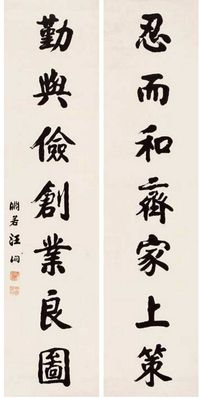 忍而和齊家上策
勤與儉創業良圖
淵若汪洵